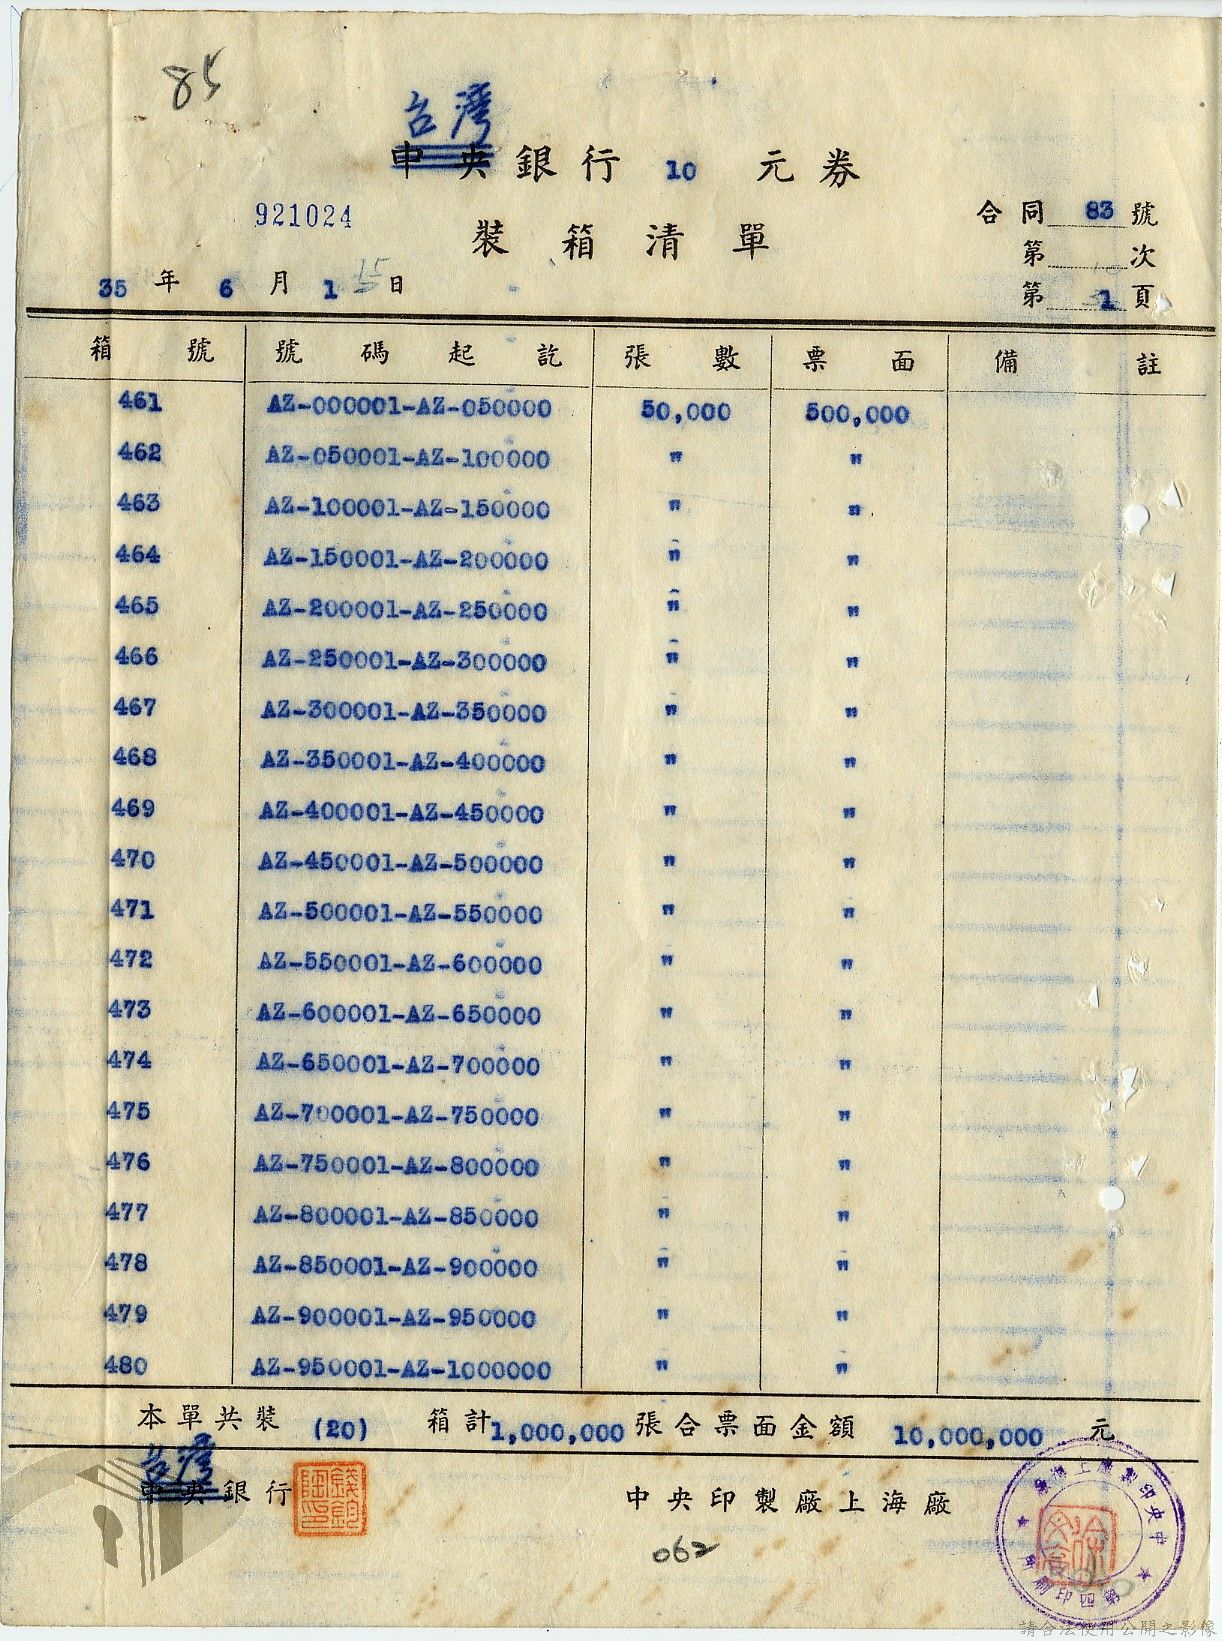 85
台灣
中央銀行 10 元券
921024
裝箱清單
合同 83 號
第 次
第 1 頁
35 年 6 月 1 15 日
箱號 號碼起訖 張數 票面 備註
461 AZ-000001-AZ-050000 50,000 500,000
462 AZ-050001-AZ-100000 " "
463 AZ-100001-AZ-150000 " "
464 AZ-150001-AZ-200000 " "
465 AZ-200001-AZ-250000 " "
466 AZ-250001-AZ-300000 " "
467 AZ-300001-AZ-350000 " "
468 AZ-350001-AZ-400000 " "
469 AZ-400001-AZ-450000 " "
470 AZ-450001-AZ-500000 " "
471 AZ-500001-AZ-550000 " "
472 AZ-550001-AZ-600000 " "
473 AZ-600001-AZ-650000 " "
474 AZ-650001-AZ-700000 " "
475 AZ-700001-AZ-750000 " "
476 AZ-750001-AZ-800000 " "
477 AZ-800001-AZ-850000 " "
478 AZ-850001-AZ-900000 " "
479 AZ-900001-AZ-950000 " "
480 AZ-950001-AZ-1000000 " "
本單共裝 (20) 箱計 1,000,000 張合票面金額 10,000,000 元
台灣
中央銀行
中央印製廠上海廠
062
中央印製廠上海
請合法使用公開之影像